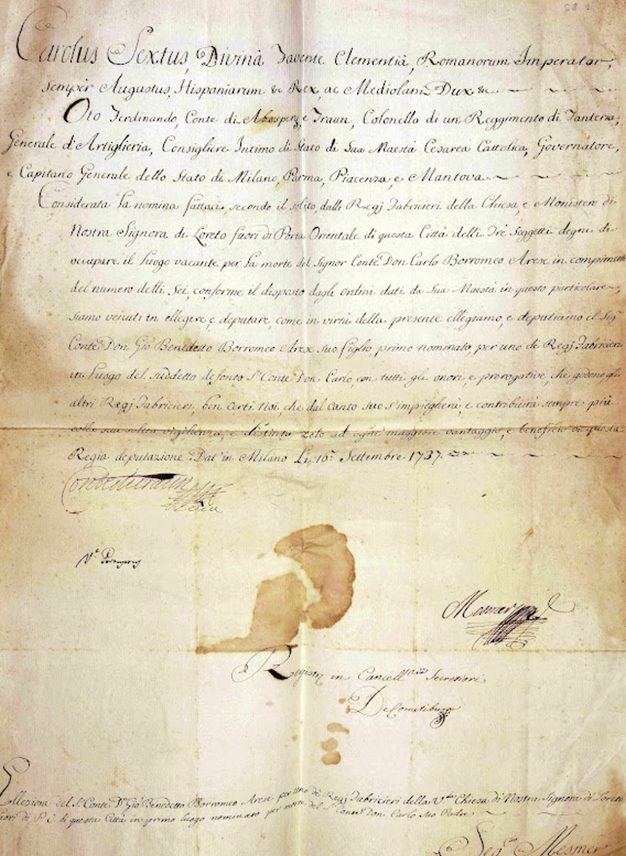 Carolus Sextus, Divinâ Favente Clementiâ, Romanorum Imperator,
semper Augustus, Hispaniarum &c Rex, ac Mediolani Dux &c
Oto Ferdinando, Conte di Abesperg e Traun, Colonello di un Reggimento di Fanteria,
Generale d'Artiglieria, Consigliere Intimo di Stato di Sua Maestà Cesarea Cattolica, Governatore,
e Capitano Generale dello Stato di Milano, Parma, Piacenza, e Mantova
Considerata la nomina fattaci, secondo il solito, dalli Regj Fabricieri della Chiesa, e Monistero di
Nostra Signora di Loreto fuori di Porta Orientale di questa Città delli Trè Soggetti degni di
occupare il luogo vacante per la morte del Signor Conte Don Carlo Borromeo Arese in compimento
del numero delli Sei, conforme il disposto dagli ordini dati da Sua Maestà in questo particolare
siamo venuti in ellegere, e deputare, come in virtù della presente elleggiamo, e deputiamo il Sigr
Conte Don Giò Benedetto Borromeo Arese suo figlio primo nominato, per uno de Regj Fabricieri
in luogo del suddetto defonto Sr Conte Don Carlo con tutti gli onori, e prerogative, che godono gli
altri Regj Fabricieri, ben certi Noi, che dal canto suo s'impiegherà, e contribuirà sempre più
colla sua solita vigilanza, e distinto zelo ad ogni maggiore vantaggio, e beneficio di questa
Regia deputazione. Dat in Milano Li 16 Settembre 1737.
Mesmer
Registr in Cancell Secretiori
Ellezione del Sr Conte Dn Giò Benedetto Borromeo Arese per uno de Regj Fabricieri della Chiesa di Nostra Signora di Loreto
fuori di P. O. di questa Città in primo luogo nominato per morte del Sr Conte don Carlo suo Padre
Segro Mesmer